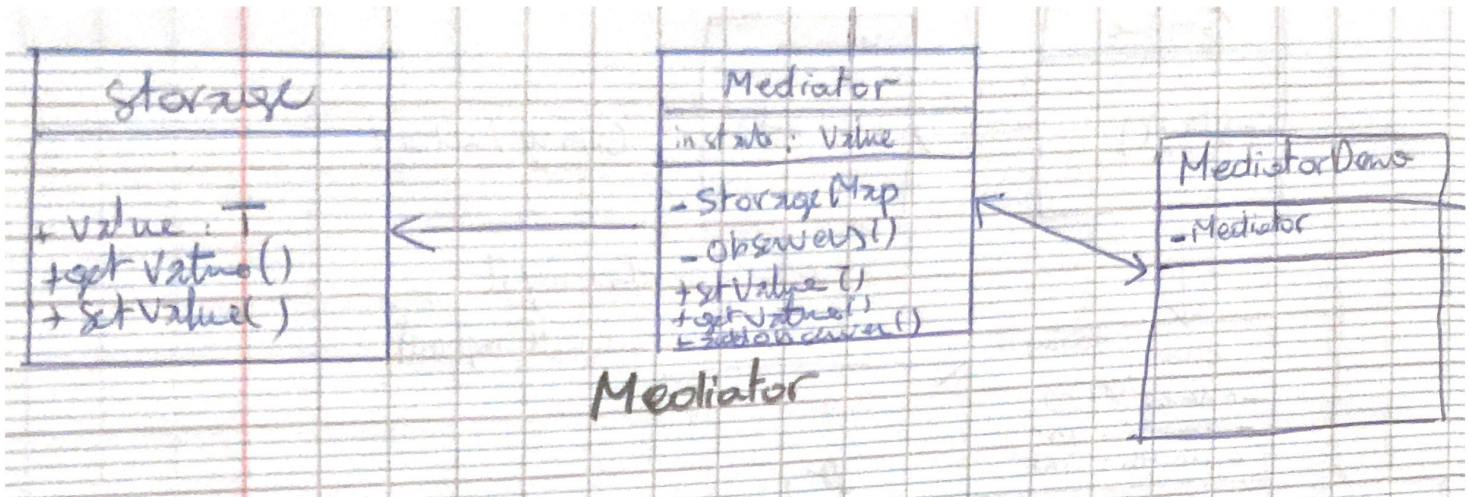 Storage
+ value : T
+ get Value()
+ set Value()
Mediator
: Value
- Storage Map
- Observers()
+ set Value()
+ get Value()
+ addObserver()
MediatorDemo
- Mediator
Mediator